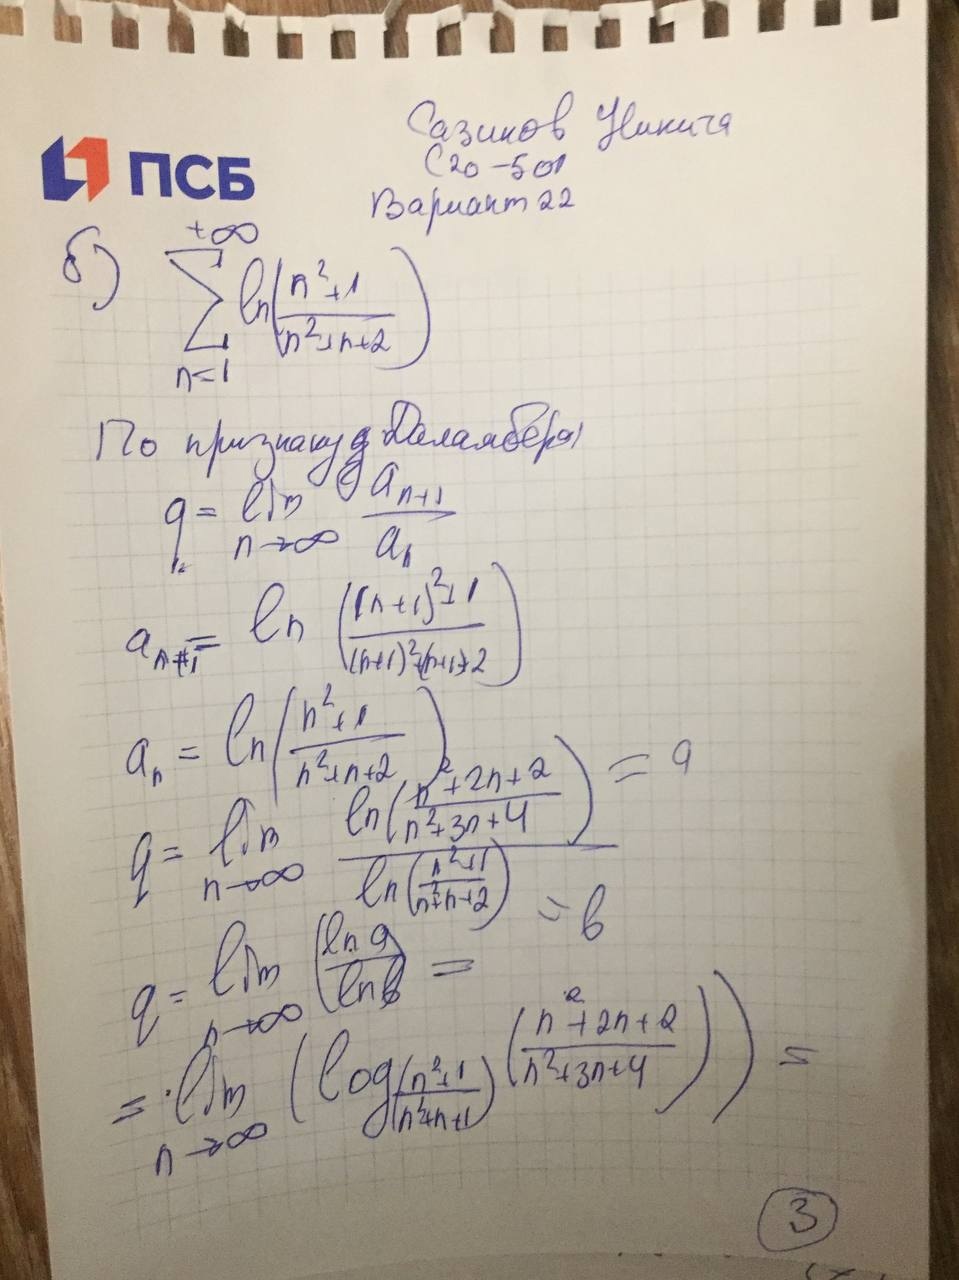 Сазиков Никита
ПСБ
С20-501
Вариант 22
б) \sum_{n=1}^{+\infty} \ln\left(\frac{n^2+1}{n^2+n+2}\right)
По признаку Даламбера
q = \lim_{n \to \infty} \frac{a_{n+1}}{a_n}
a_{n+1} = \ln\left(\frac{(n+1)^2+1}{(n+1)^2+(n+1)+2}\right)
a_n = \ln\left(\frac{n^2+1}{n^2+n+2}\right)
q = \lim_{n \to \infty} \frac{\ln\left(\frac{n^2+2n+2}{n^2+3n+4}\right)}{\ln\left(\frac{n^2+1}{n^2+n+2}\right)} = a = b
q = \lim_{n \to \infty} \left(\frac{\ln a}{\ln b}\right) =
= \lim_{n \to \infty} \left(\log_{\left(\frac{n^2+1}{n^2+n+1}\right)}\left(\frac{n^2+2n+2}{n^2+3n+4}\right)\right) =
3